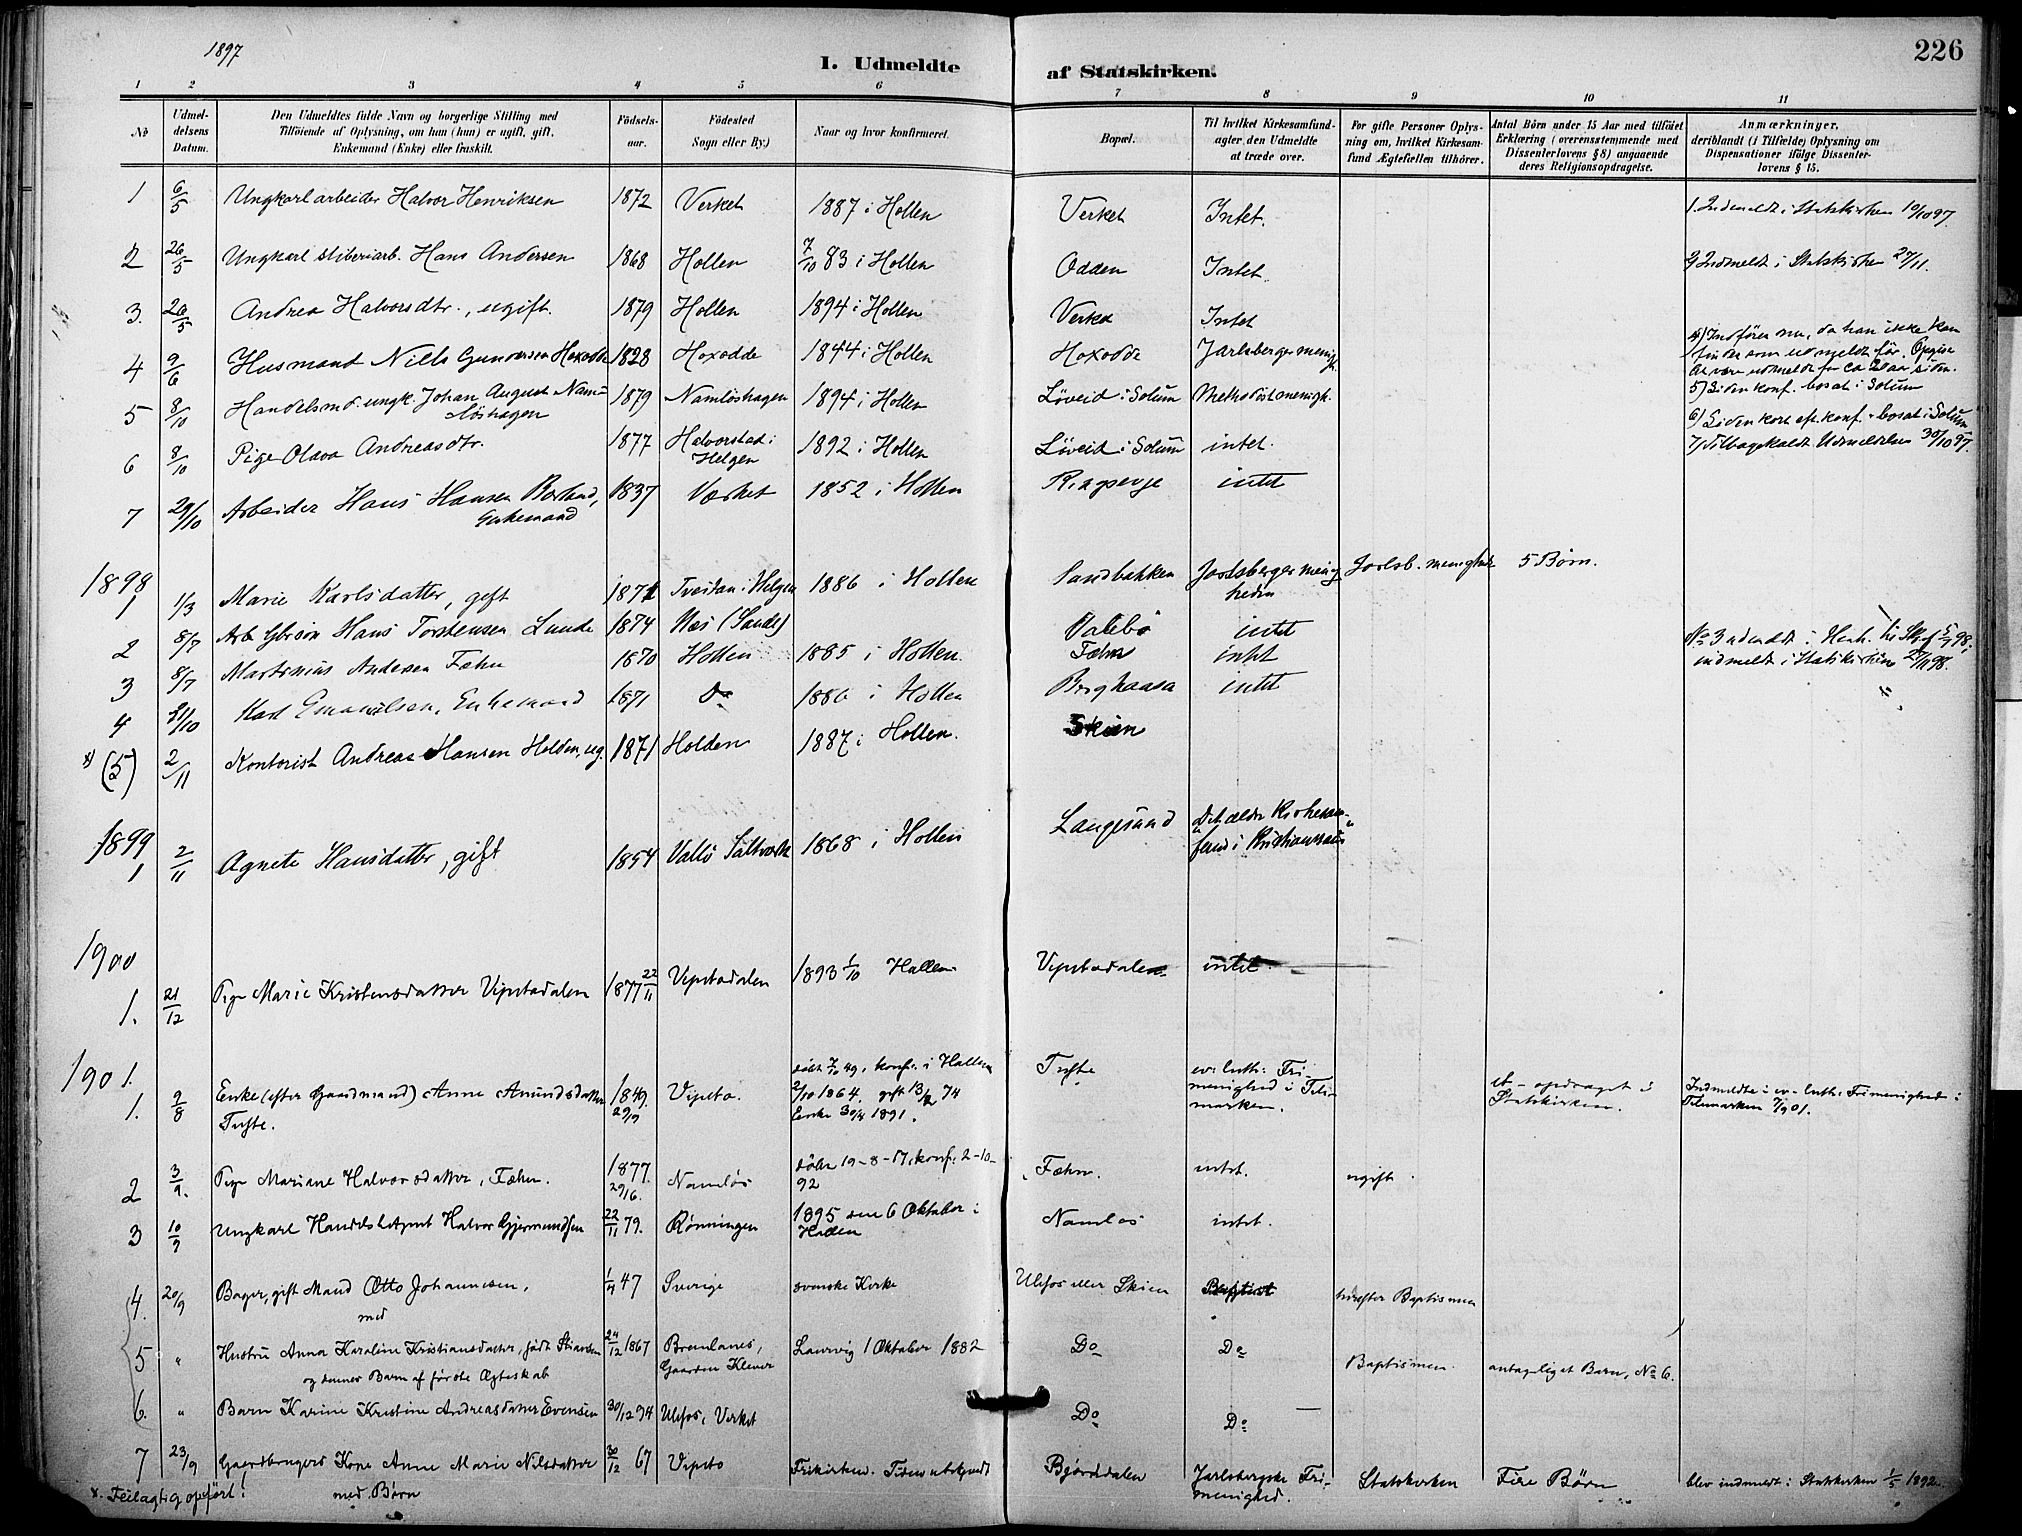 1897
1. Udmeldte af Statskirken.
226
1 2 3 4 5 6 7 8 9 10 11
No
Udmel-
delsens
Datum.
Den Udmeldtes fulde Navn og borgerlige Stilling med
Tilföiende af Oplysning, om han (hun) er ugift, gift,
Enkemand (Enke) eller fraskilt.
Födsels-
aar.
Födested
Sogn eller By.)
Naar og hvor konfirmeret.
Bopæl.
Til hvilket Kirkesamfund-
agter den Udmeldte
at træde over.
For gifte Personer Oplys-
ning om, hvilket Kirkesam-
fund Ægtefællen tilhörer.
Antal Børn under 15 Aar med tilföiet
Erklæring (overensstemmende med
Dissenterlovens § 8) angaaende
deres Religionsopdragelse.
Anmærkninger,
deriblandt (i Tilfælde) Oplysning om
Dispensationer ifölge Dissenter-
lovens § 15.
1 6/5 Ungkarl arbeider Halvor Henriksen 1872 Verket 1887 i Hollen Verket Intet. 1. Indmeldt i Statskirken 10/10 97.
2 26/5 Ungkarl sliberiarb. Hans Andersen 1868 Hollen 7/10 83 i Hollen Odden Intet. 2) Indmeldt i Statskirken 27/11.
3. 26/5 Andrea Halvorsdtr., ugift. 1879 Hollen 1894 i Hollen Verket Intet
4 9/6 Husmand Nills Gundersen Hoxodde 1828 Hoxodde 1844 i Hollen Hoxodde Jarlsberger menigh. 4) Indföres nu, da han ikke kan
findes som udmeldt för. Opgives
at være udmeldt for ca 20 aar siden.
5 8/10 Handelsmd. ungk. Johan August Nam-
löshagen 1879 Namlöshagen 1894 i Hollen Löveid i Solum Methodistmenigh. 5) Siden konf. bosat i Solum
6 8/10 Pige Olava Andreasdtr. 1877 Halvorstad i
Helgen 1892 i Hollen Löveid i Solum intet. 6) Siden kort eft. konf. bosat i Solum
7 29/10 Arbeider Hans Hansen
Enkemand 1837 Værket 1852 i Hollen Ringsevje intet 7) Tilbagekaldt Udmeldelsen 30/10 97.
1898
1 1/3 Marie Karlsdatter, gift 1871 Tveitan i Helgen 1886 i Hollen Sandbakken Jarlsberger menig-
heden Jarlsb. menighed 5 Børn.
2 8/7 Arb Hans Torstensen Lunde 1874 Næs (Sande) Valebö intet
3 8/7 Martinius Andersen Fæhn 1870 Hollen 1885 i Hollen. Fæhn intet No 3 udmeldt
indmeldt i Statskirken 27/11 98.
4 31/10 Karl Emanuelsen, Enkemand 1871 Do 1886 i Hollen Berghaasa intet "
x) (5) 2/11 Kontorist Andreas Hansen Holden, ug. 1871 Holden 1887 i Hollen. Skien
1899
1 2/11 Agnete Hansdatter, gift 1854 Vallö Saltværk 1868 i Hollen Langesund Det ældre Kirkesam-
fund i Kristianssand
1900
1. 21/12 Pige Marie Kristensdatter Vipetadalen 1877 22/11 Vipetadalen 1893 1/10 Hollen Vipetadalen intet.
1901.
1. 9/8 Enke (efter Gaardmand) Anne Amundsdatter
Tufte. 1849. 29/9 Vipeto. konf. i Hollen
2/10 1864. gift 13/2 74
Enke 30/4 1891. Tufte ev: luth: Fri-
menighed i Tele-
marken. et – opdraget i
Statskirken. Indmeldte i ev-luth: Frimenighed i
Telemarken 9/901.
2 3/9. Pige Mariane Halvorsdatter, Fæhn. 1877. 29/6. Namlös döbt 19-8-77, konf: 2-10-
92 Fæhn. intet. ugift.
3 10/9 Ungkarl Handelsbetjent Halvor Gjermundsen 22/11 79. Rønningen 1895 den 6 Oktober i
Hollen Namlos intet.
4. 20/9 Bager, gift Mand Otto Johannesen,
med 1/4 47 Sverige svenske Kirke Ulefos eller Skien Baptist Baptismen
5 " Hustru Anna Karoline Kristiansdatter, født
og dennes Barn af første Ægteskab 24/12 1867 Brunlanes,
Gaarden Laurvig 1 Oktober 1882 Do Do Baptismen. Barn, No 6.
6. " Barn Karine Kristine Andreasdatter Evensen 30/12 94 Ulefos, Verket Do Do —
7 23/9 Gaardbrugers Kone Anne Marie Nilsdatter
med Børn 30/12 67 Vipeto Frikirken. Tiden ubekjendt Bjørndalen Jarlsbergske Fri-
menighed. Statskirken Fire Børn blev indmeldt i Statskirken 1/5 1892.
x. Feilagtig opført!